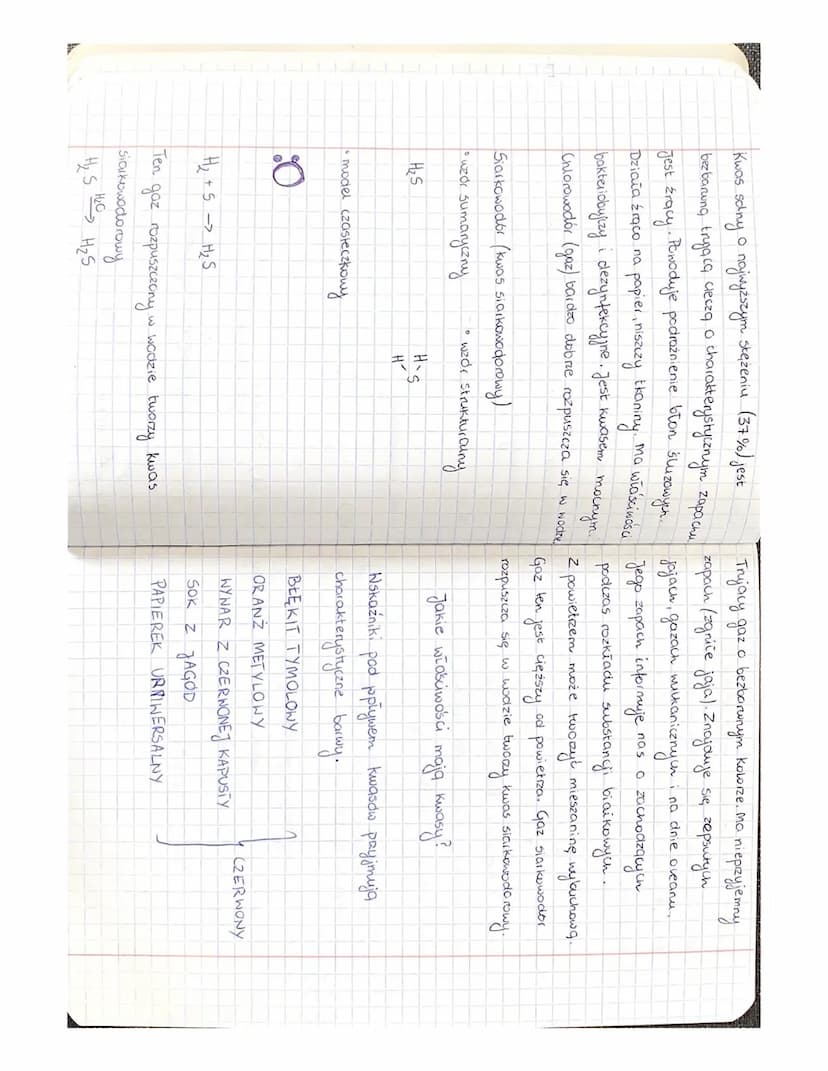 Kwas solny o najwyższym stężeniu (37%) jest
bezbarwną trującą cieczą o charakterystycznym zapachu
jest żrący. Powoduje podrażnienie błon śluzowych.
Działa żrąco na papier, niszczy tkaniny. Ma właściwości
bakteriobójczy i dezynfekcyjne. Jest kwasem mocnym.
Chlorowodór (gaz) bardzo dobrze rozpuszcza się w wodzie
Siarkowodór (kwas siarkowodorowy)
• wzór sumaryczny • wzór strukturalny
H₂S H-S
H-
• model cząsteczkowy
H₂ + S → H₂S
Ten gaz rozpuszczony w wodzie tworzy kwas
siarkowodorowy
H₂S H₂O → H₂S
Trujący gaz o bezbarwnym kolorze. Ma nieprzyjemny
zapach (zgniłe jaja). Znajduje się zepsutych
jajach, gazach wulkanicznych i na dnie oceanu.
Jego zapach informuje nas o zachodzących
podczas rozkładu substancji białkowych.
Z powietrzem może tworzyć mieszaninę wybuchową.
Gaz ten jest cięższy od powietrza. Gaz siarkowodór
rozpuszcza się w wodzie tworzy kwas siarkowodorowy.
Jakie właściwości mają kwasy?
Wskaźniki pod wpływem kwasów przyjmują
charakterystyczne barwy.
BŁĘKIT TYMOLOWY
ORANŻ METYLOWY
WYWAR Z CZERWONEJ KAPUSTY
CZERWONY
SOK Z JAGÓD
PAPIEREK UNIWERSALNY